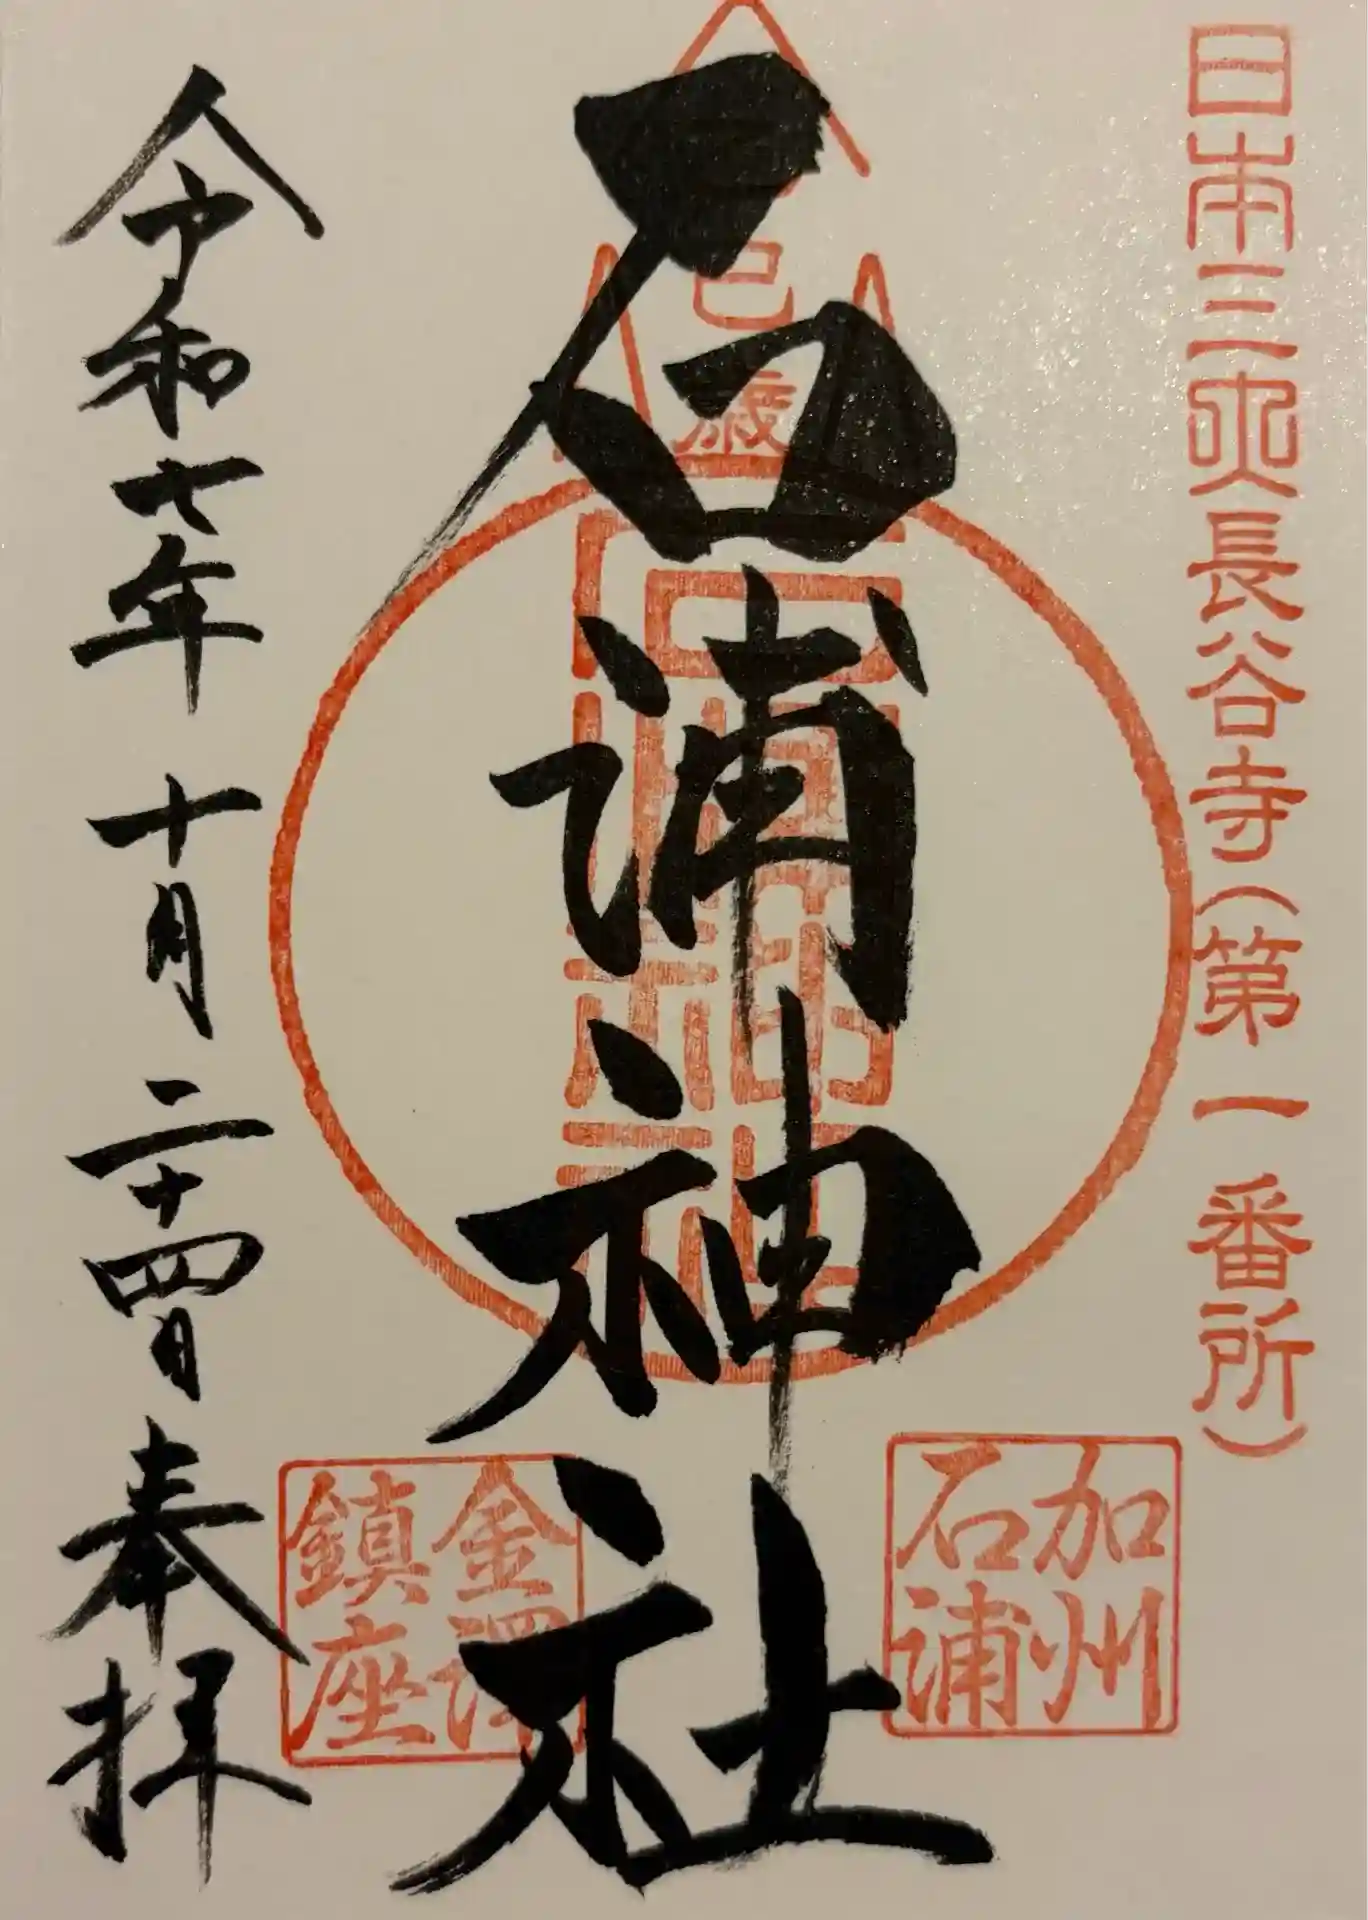 日本三所長谷寺(第一番所)
加州
石浦
巳
歳
石浦神社
金澤
鎮座
令和七年 十月 二十四日 奉拝